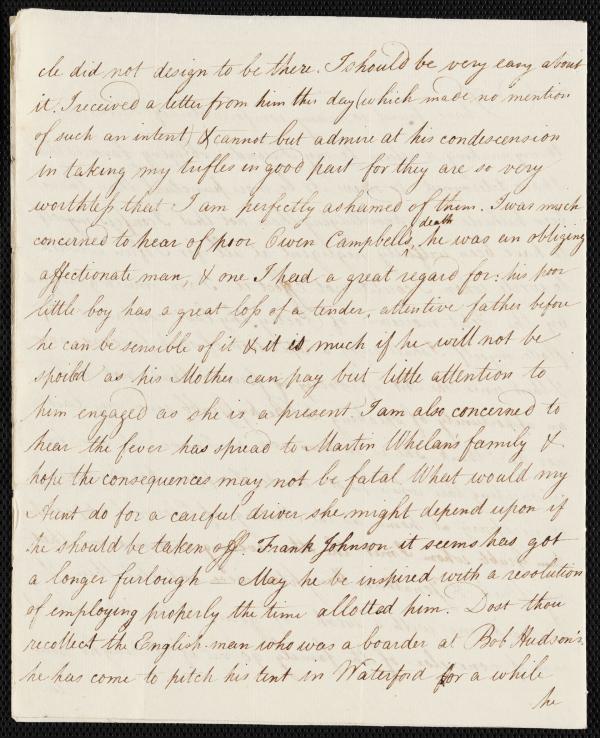 cle did not design to be there. I should be very easy about
it. I received a letter from him this day (which made no mention
of such an intent) & cannot but admire at his condescension
in taking my trifles in good part for they are so very
worthless that I am perfectly ashamed of them. I was much
concerned to hear of poor Owen Campbells ^death he was an obliging
affectionate man, & one I had a great regard for: his poor
little boy has a great loss of a tender, attentive father before
he can be sensible of it & it is much if he will not be
spoild as his Mother can pay but little attention to
him engaged as she is a present. I am also concerned to
hear the fever has spread to Martin Whelans family &
hope the consequences may not be fatal What would my
Aunt do for a careful driver she might depend upon if
he should be taken off. Frank Johnson it seems has got
a longer furlough — May he be inspired with a resolution
of employing properly the time allotted him. Dost thou
recollect the English-man who was a boarder at Bob Hudson's,
he has come to pitch his tent in Waterford for a while
he